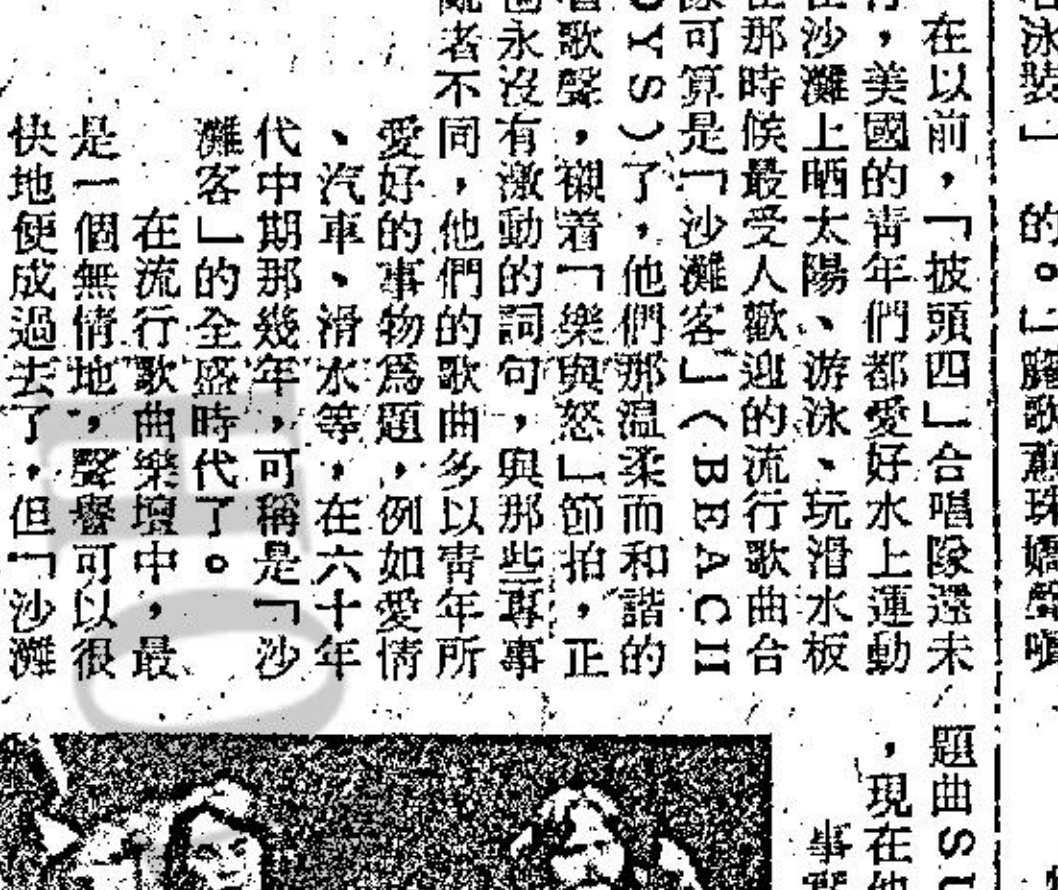 泳裝」 的。」歌燕珠嬌聲嗔
在以前,「披頭四」合唱隊還未
,美國的青年們都愛好水上運動
在沙灘上晒太陽、游泳、玩滑水板
在那時候最受人歡迎的流行歌曲合
隊可算是「沙灘客」(BEACH
OYS)了,他們那溫柔而和諧的
歌聲,襯着「樂與怒」節拍,正
也永沒有激動的詞句,與那些專事
亂者不同,他們的歌曲多以青年所
愛好的事物爲題,例如愛情
、汽車、滑水等,在六十年
代中期那幾年,可稱是「沙
灘客」的全盛時代了。
在流行歌曲樂壇中,最
是一個無情地,聲譽可以很
快地便成過去了,但「沙灘
題曲S
,現在他
事